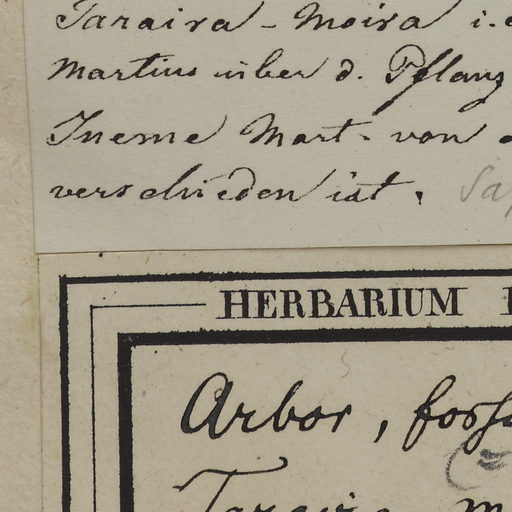 Taraira - Moira i.e
Martius über d. Pflanz
Ineme Mart. von
verschieden ist.
HERBARIUM
Arbor, forsa
Taraira